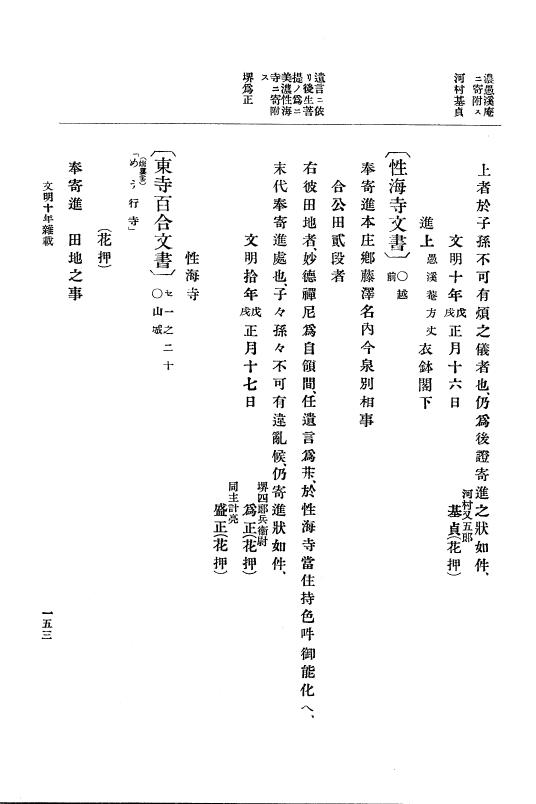 濃愚溪庵
ニ寄附ス
河村基貞
遺言ニ依
リ後生菩
提ノ爲ニ
美濃性海
寺ニ寄附
ス
堺爲正
上者於子孫不可有煩之儀者也、仍爲後證寄進之狀如件、
河村又五郎
文明十年戊戌正月十六日　基貞(花押)
進上　愚溪菴方丈　衣鉢閣下
〔性海寺文書〕　〇越前
奉寄進本庄鄕藤澤名内今泉別相事
合公田貳段者
右彼田地者、妙德禪尼爲自領間、任遺言爲并、於性海寺當住持色吽御能化へ、
末代奉寄進處也、子々孫々不可有違亂候、仍寄進狀如件、
堺四郎兵衞尉
文明拾年戊戌正月十七日　爲正(花押)
同主計亮
盛正(花押)
性海寺
〔東寺百合文書〕　セ一之二十　〇山城
「めうり行寺」
(花押)
奉寄進　田地之事
文明十年雜載
一五三